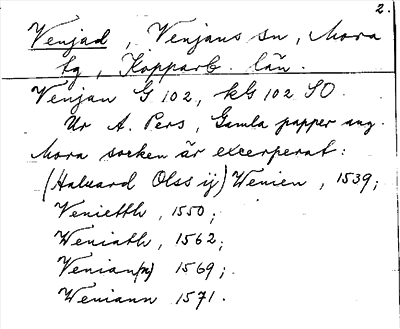 2.
Venjad, Venjans sn, Mora
tg, Kopparb. län.
Venjan G 102, kG 102 SO.
Ur A. Pers, Gamla papper ang.
Mora socken är excerperat:
(Halvard Olss ij) Wenien, 1539;
Venietth, 1550;
Weniath, 1562;
Venian(n) 1569;
Weniann 1571.